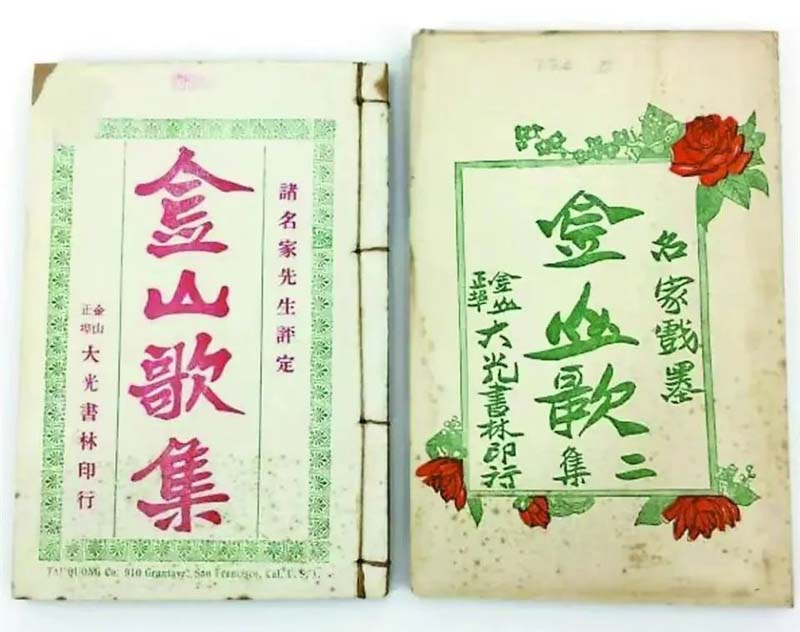 諸名家先生評定
金山歌集
金山正埠大光書林印行
TAI QUONG Co. 910 Grant ave. San Francisco, Cal. U. S. A.
名家戲墨
金山歌二集
金山正埠大光書林印行